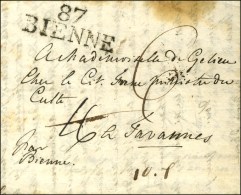 87
BIENNE
A Mademoiselle de Gelieu
Chez le Cit. ministre du
Culte
à Tavannes
par
Bienne.